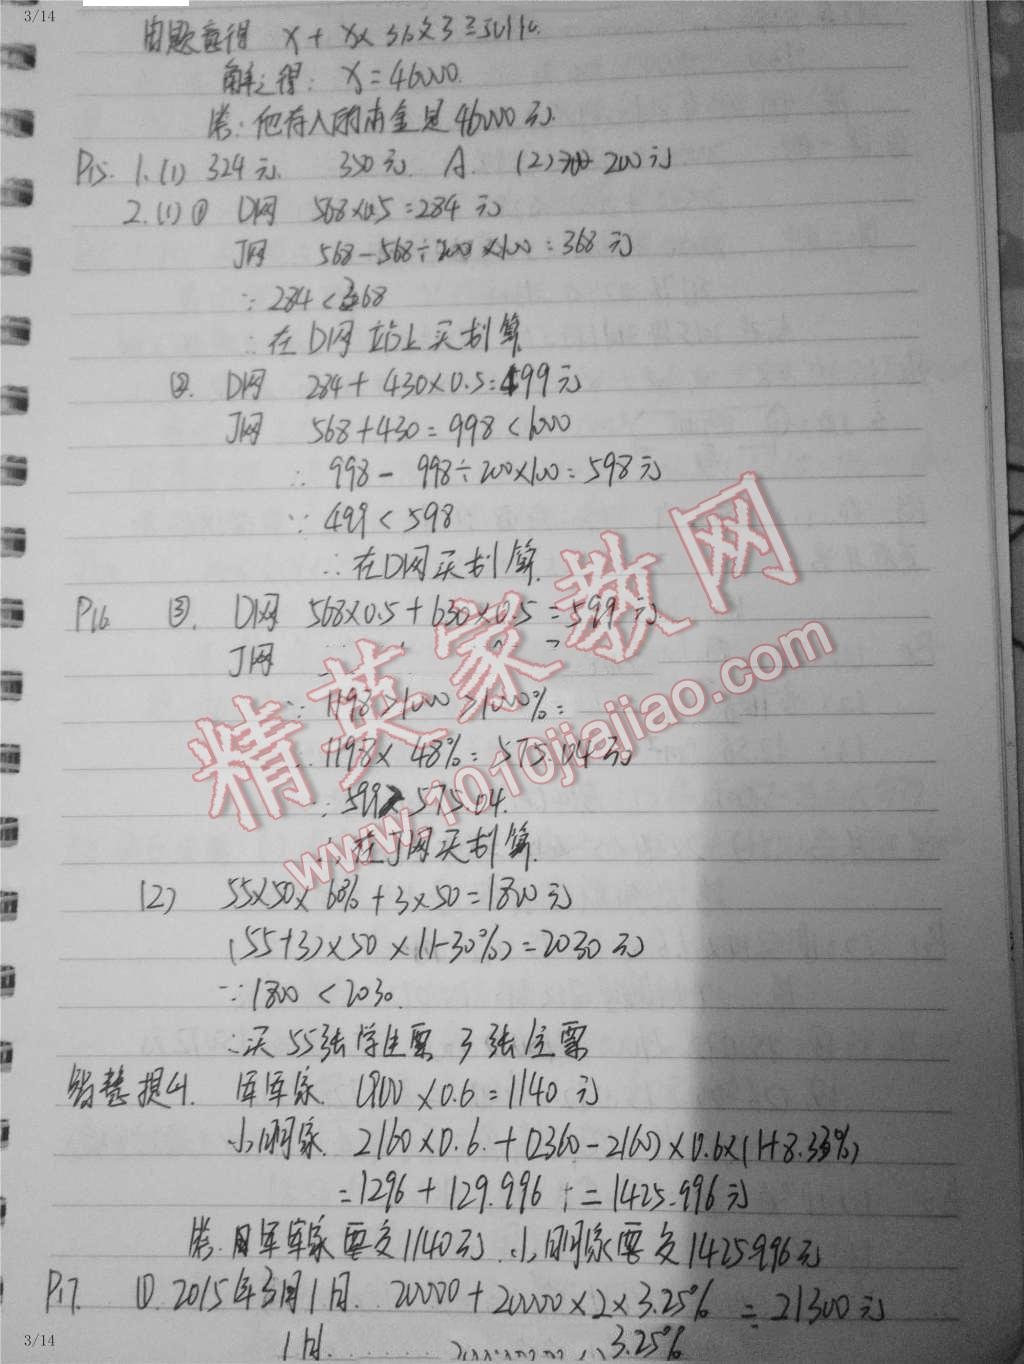 3/14
由题意得 x + x×3%×3=50140.
解之得: x=46000.
答:他存入的本金是46000元.
P15. 1.(1) 324元. 350元. A. (2) 200元
2.(1)① D网 568×0.5=284元
J网 568-568÷200×100=368元
∵ 284<368
∴在D网站上买划算.
②. D网 284+430×0.5=499元
J网 568+430=998<1000
∴ 998-998÷200×100=598元
∵ 499<598
∴在D网买划算.
P16 ③. D网 568×0.5+630×0.5=599元.
J网
∵1198>1000
∴1198×48%=575.04元
∵599>575.04.
∴在J网买划算.
(2) 55×50×60%+3×50=1800元
(55+3)×50×(1-30%)=2030元
∵1800<2030.
∴买55张学生票 3张全票
智慧提升. 军军家. 1900×0.6=1140元
小明家. 2160×0.6+(2360-2160)×0.6×(1+8.33%)
=1296+129.996=1425.996元
答:军军家要交1140元.小明家要交1425.996元
P17. ①.2015年3月1日. 20000+20000×2×3.25%=21300元
3.25%
3/14
精英家教网
www.1010jiajiao.com